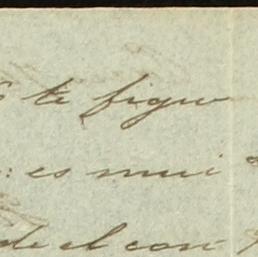 te figu
: es mui
de el con